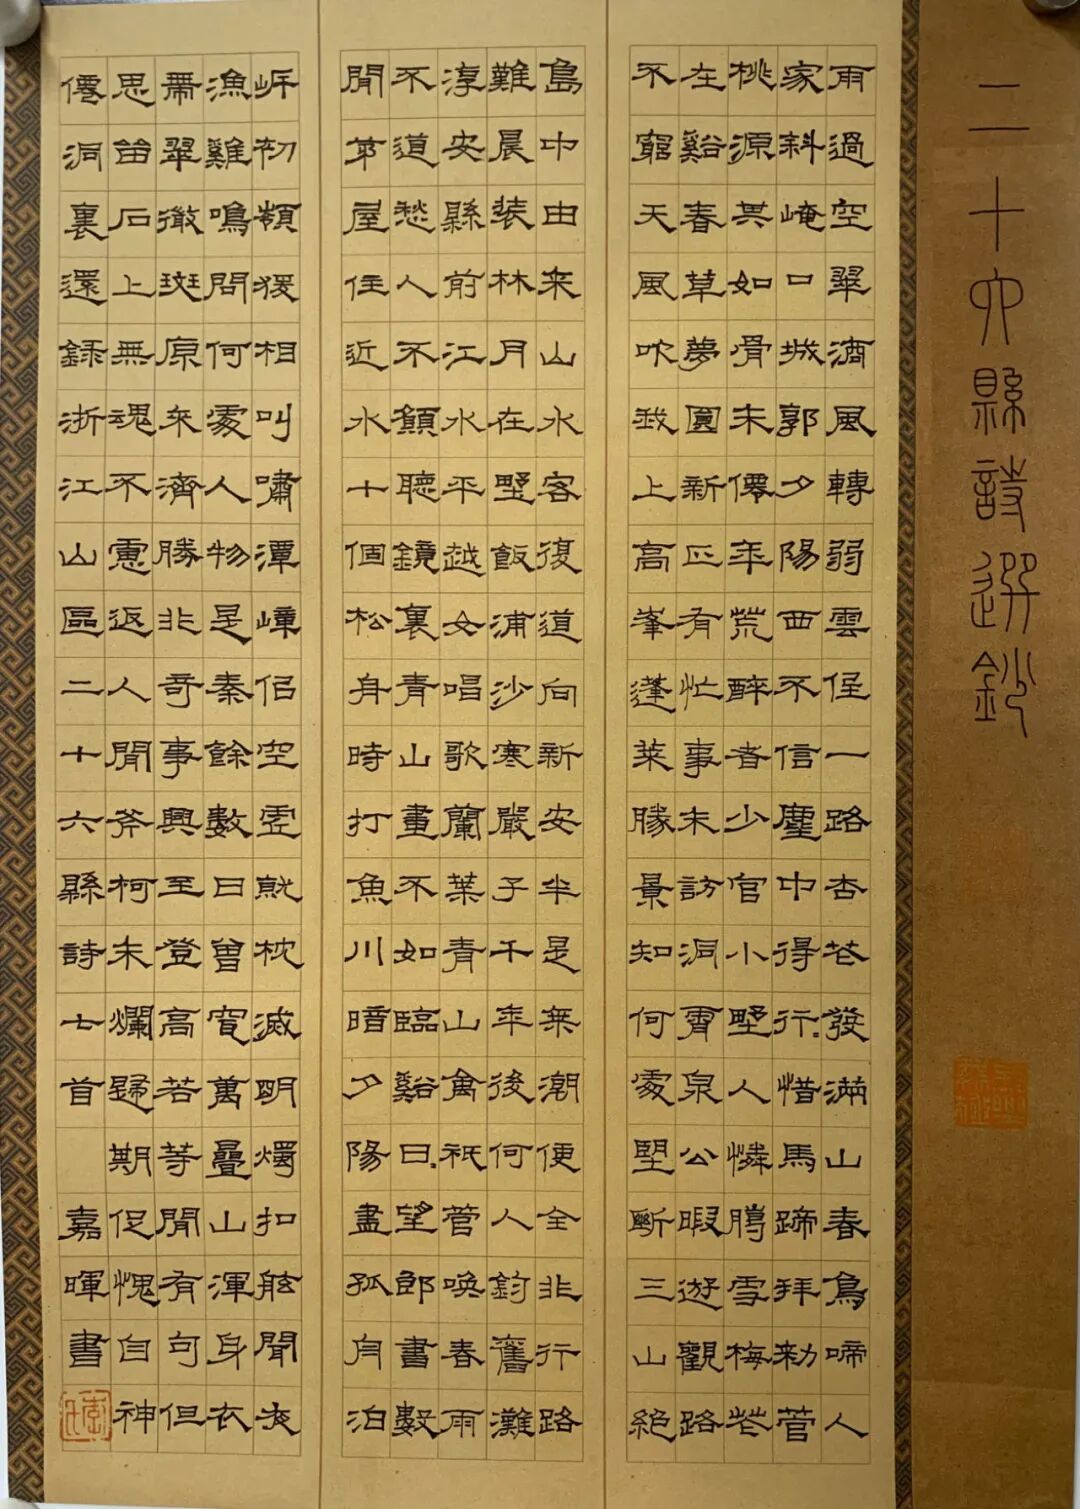 二十六縣詩選鈔
雨過空翠滴風轉弱雲徑一路杏花發滿山春鳥啼人
家斜崦口城郭夕陽西不信塵中得行惜馬蹄拜勑管
桃源其如骨未僊年荒醉者少官小野人憐雪梅花
在谿春草夢圓新正有忙事未訪洞霄泉公暇遊觀路
不窮天風吹我上高峯蓬萊勝景知何處塹斷三山絕
島中由来山水客復道向新安半是無潮便全非行路
難晨裝林月在野飯浦沙寒嚴子千年後何人釣舊灘
淳安縣前江水平越女唱歌蘭葉青山禽祇管喚春雨
不道愁人不願聽鏡裏青山畫不如臨谿曰望郎書數
間茅屋住近水十個松身時打魚川暗夕陽盡孤舟泊
岸初頓猨相叫嘯潭嶂侶空虛就枕滅明燭扣舷聞夜
漁雞鳴問何處人物是秦餘數曰曾窺萬疊山渾身衣
帶翠微斑原來濟勝非奇事興至登高若等閒有句但
思留石上無魂不慮返人間斧柯未爛歸期促愧自神
僊洞裏還錄浙江山區二十六縣詩七首 嘉暉書